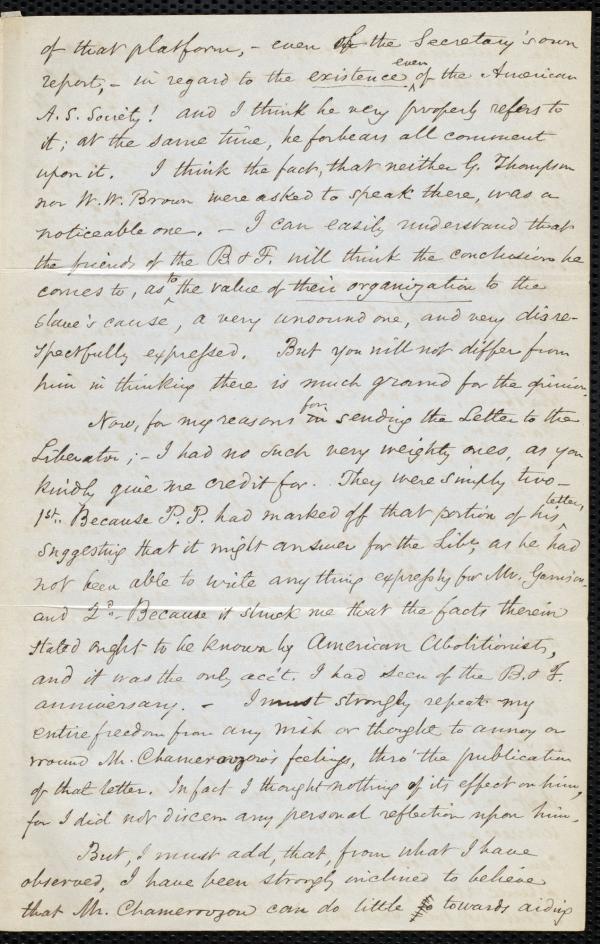 of that platform, - even the Secretary's own
report, - in regard to the existence even of the American
A. S. Society! and I think he very properly refers to
it; at the same time, he forbears all comment
upon it. I think the fact, that neither G. Thompson
nor W. W. Brown were asked to speak there, was a
noticeable one. - I can easily understand that
the friends of the B. & F. will think the conclusion he
comes to, as to the value of their organization to the
Slave's cause, a very unsound one, and very disre-
spectfully expressed. But you will not differ from
him in thinking there is much ground for the opinion.
Now, for my reasons for sending the Letter to the
Liberator; - I had no such very weighty ones, as you
kindly give me credit for. They were simply two -
1st. Because P. P. had marked off that portion of his letter,
suggesting that it might answer for the Lib., as he had
not been able to write anything expressly for Mr. Garrison.
and 2d. Because it struck me that the facts therein
stated ought to be known by American Abolitionists,
and it was the only acc't. I had seen of the B. & F.
anniversary. - I must strongly repeat my
entire freedom from any wish or thought to annoy or
wound Mr. Chamerovzow's feelings, thro' the publication
of that letter. In fact I thought nothing of its effect on him,
for I did not discern any personal reflection upon him.
But, I must add, that, from what I have
observed, I have been strongly inclined to believe
that Mr. Chamerovzow can do little towards aiding